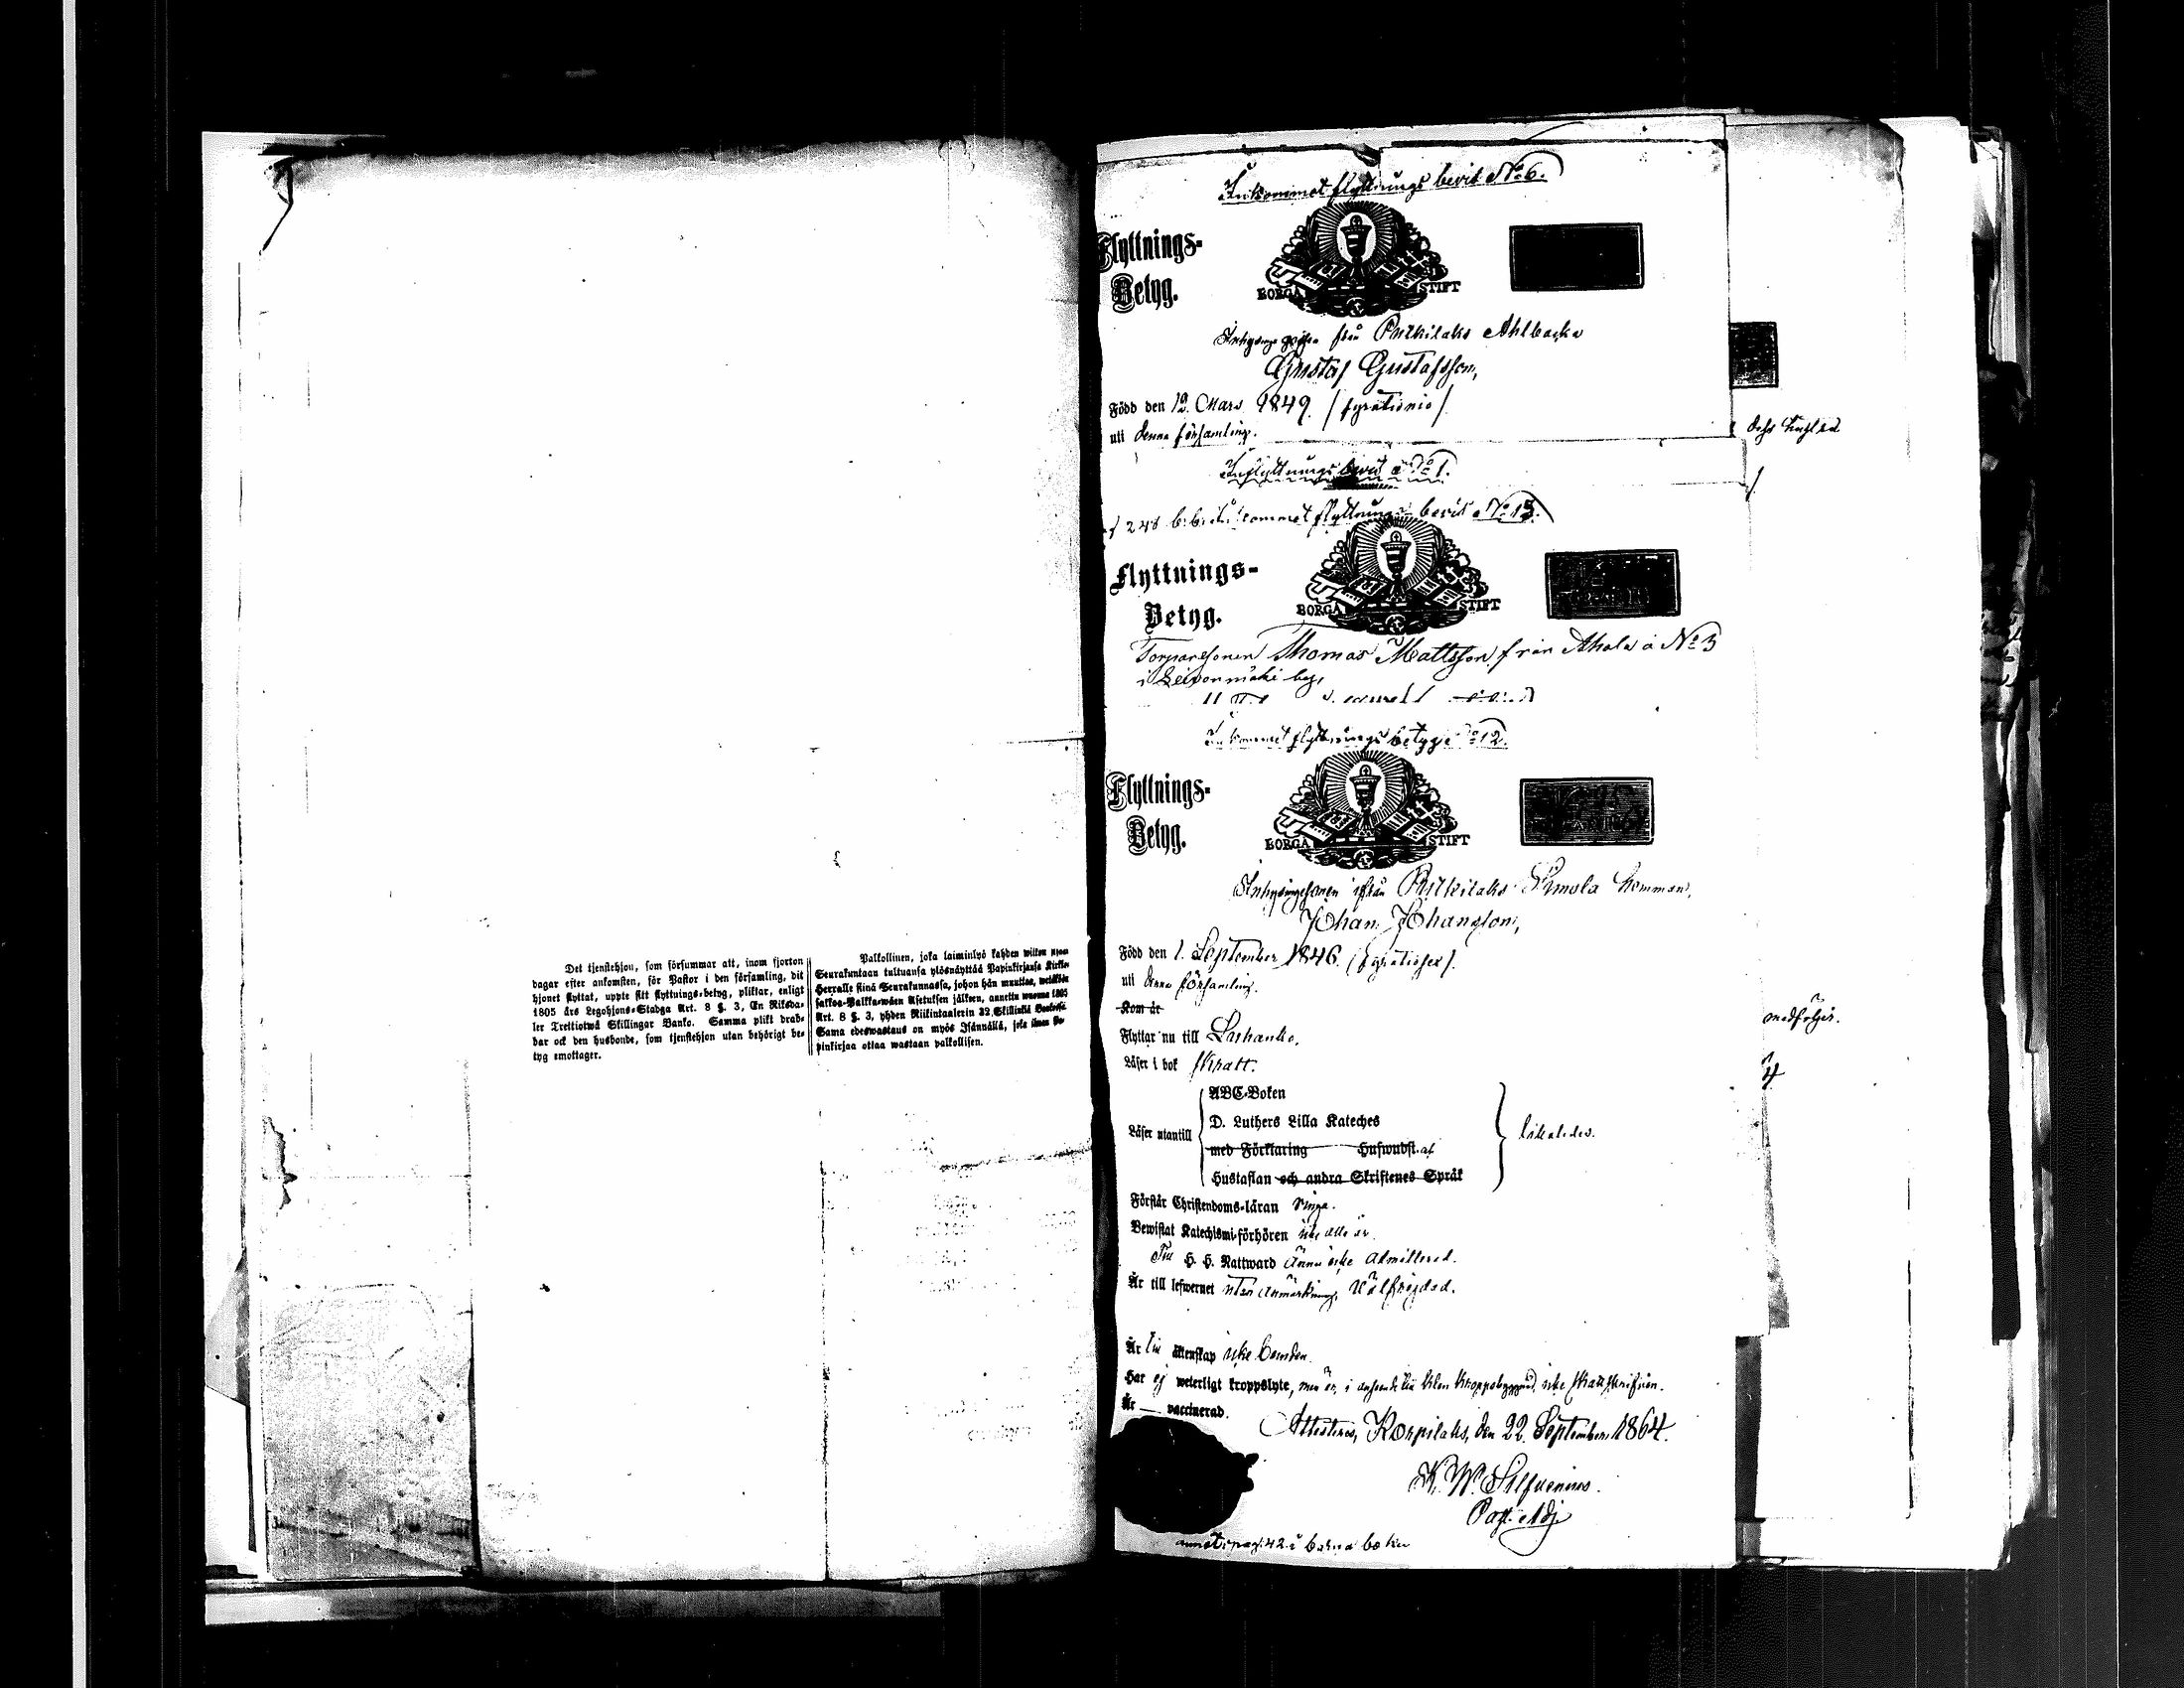 Det tjenstehjon, som försummar att, inom fjorton
dagar efter ankomsten, för Pastor i den församling, dit
hjonet flyttat, uppte sitt flyttnings-betyg, pliktar, enligt
1805 års Legohjons-Stadga Art. 8 §. 3, En Riksda-
ler Trettiotwå Skillingar Banko. Samma plikt drab-
bar ock den husbonde, som tjenstehjon utan behörigt be-
tyg emottager.
Palkollinen, joka laiminlyö kahden wiikon
Seurakuntaan tultuansa ylösnäyttää Papinkirjansa Kirkko-
Herralle siinä Seurakunnassa, johon hän muuttaa, wetäköön
sakkoa Palkka-wäen Asetuksen jälkeen, annettu wuonna 1805
Art. 8 §. 3, yhden Riikintaalerin 32 Skillinkiä
Sama edeswastaus on myös Isännällä, joka ilman
pinkirjaa ottaa wastaan palkollisen.
Inkommet flyttnings bevis No 6.
Flyttnings-
Betyg.
BORGÅ STIFT
från Putkilaks Ahlbacka
Gustaf Gustafsson,
Född den 12. Mars 1849.
uti denna församling.
Inflyttnings bevis No 1.
248 inkommet flyttnings bevis No 15.
Flyttnings-
Betyg.
BORGÅ STIFT
Torparesonen Thomas Mattsson från Ahola å No 3
i Leivonmäki by,
Inkommet flyttnings betyg No 12.
Flyttnings-
Betyg.
BORGÅ STIFT
Inhysingesonen ifrån Putkilaks hemman,
Johan Johansson,
Född den 1. September 1846.
uti denna församling.
Kom år
Flyttar nu till Luhanko.
Läser i bok svagt.
ABC-Boken
D. Luthers Lilla Kateches
Läser utantill
med Förklaring Hufwudst. af
Hustaflan och andra Skriftenes Språk
likaledes.
Förstår Christendoms-läran ringa.
Bewistat Katechismi-förhören icke alla år.
Till H. H. Nattward ännu icke admitterad.
Är till lefwernet utan anmärkning, välfrejdad.
Är till äktenskap icke bunden.
Har ej weterligt kroppslyte, men är, i anseende till klen kroppsbyggnad, icke skattskrifven.
Är vaccinerad.
Attesteras, Korpilaks, den 22 September 1864.
K. W. Silfvenius.
Past. Adj.
pag. 42 i barna boken
medföljer.